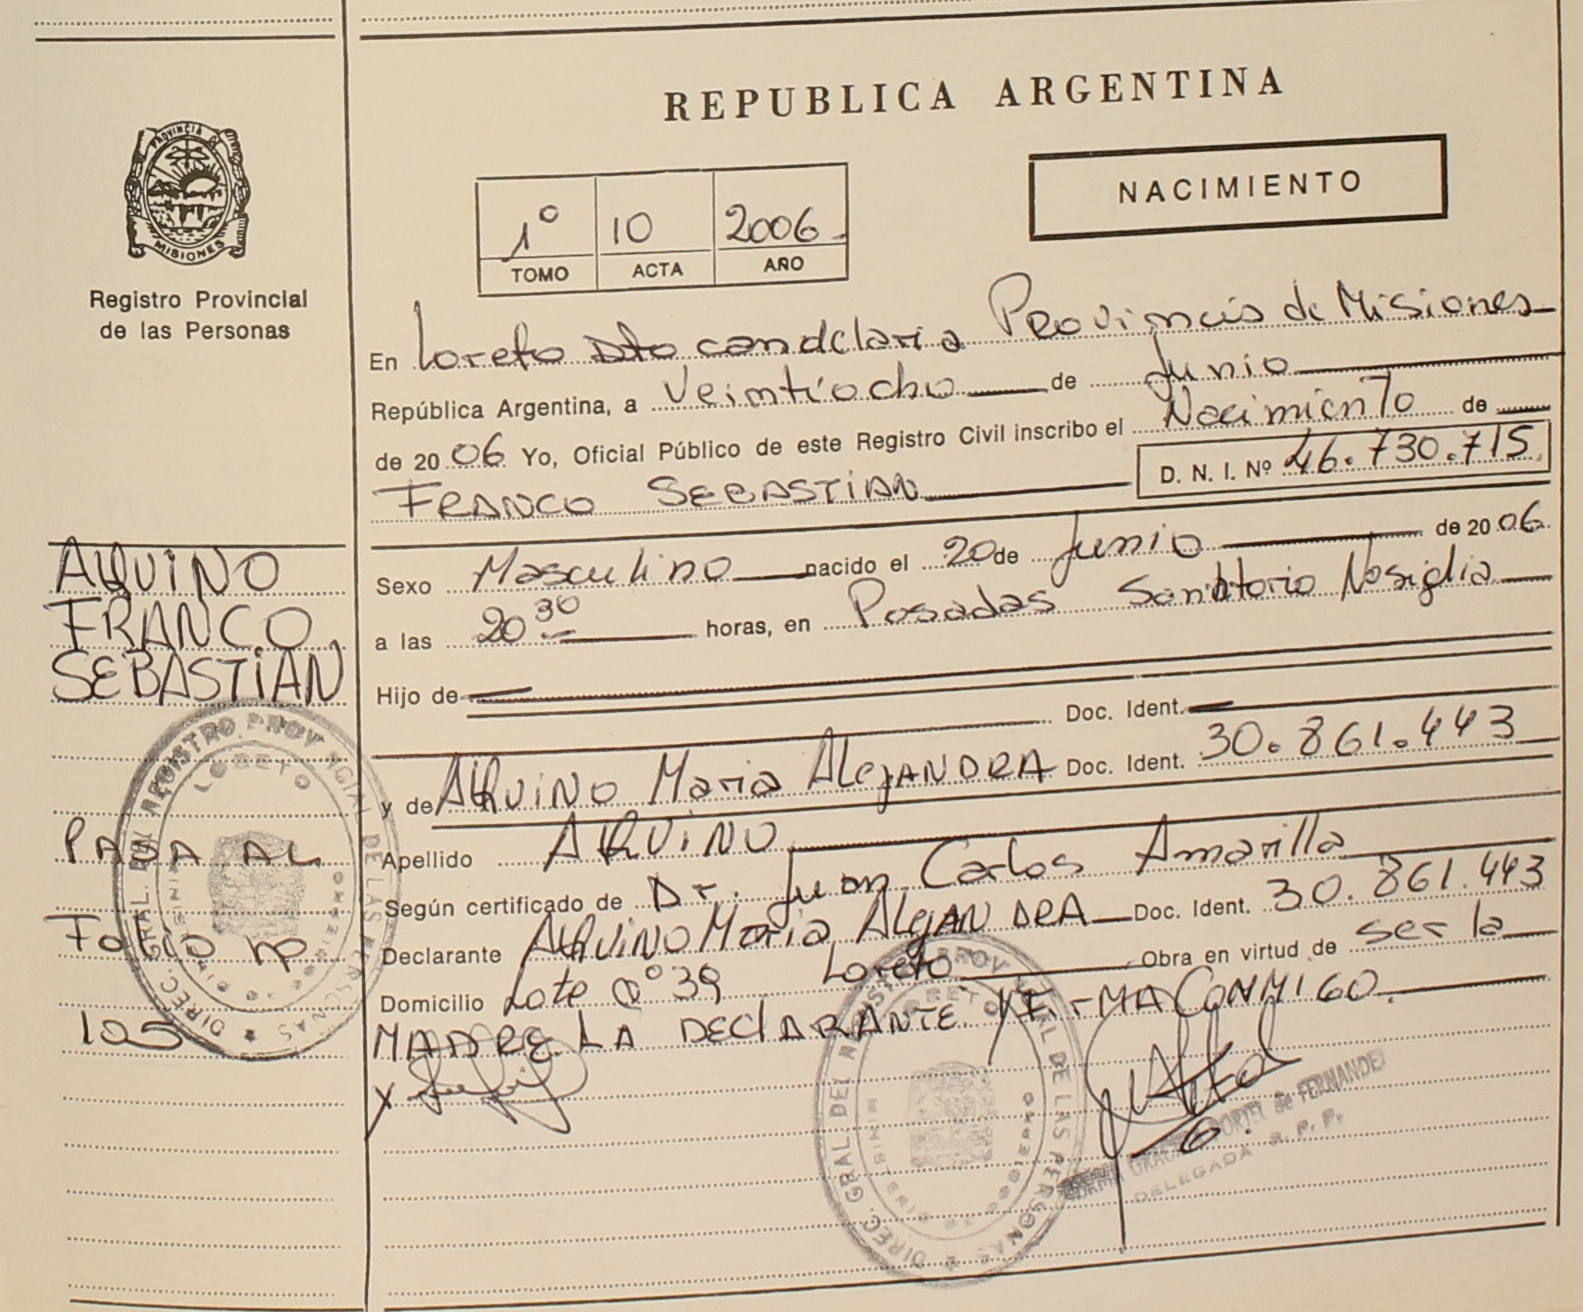 REPUBLICA ARGENTINA
PROVINCIA DE
MISIONES
Registro Provincial
de las Personas
NACIMIENTO
1º 10 2006
TOMO ACTA AÑO
En Loreto Dto candelaria Provincia de Misiones
República Argentina, a Veintiocho de Junio
de 2006 Yo, Oficial Público de este Registro Civil inscribo el Nacimiento de
FRANCO SEBASTIAN D. N. I. Nº 46.730.715
Sexo Masculino nacido el 20 de Junio de 2006
a las 20 30 horas, en Posadas Sanatorio Nosiglia
Hijo de
Doc. Ident.
y de AQUINO Maria ALEJANDRA Doc. Ident. 30.861.443
Apellido AQUINO
Según certificado de Dr. Juan Carlos Amarilla
Declarante AQUINO Maria ALEJANDRA Doc. Ident. 30.861.443
Domicilio Lote nº 39 Loreto Obra en virtud de ser la
MADRE. LA DECLARANTE FIRMA CONMIGO.
X
AQUINO
FRANCO
SEBASTIAN
PASA AL
Folio nº
105
DIREC. GRAL. DEL REGISTRO PROVINCIAL DE LAS PERSONAS
LORETO
MISIONES
DIREC. GRAL. DEL REGISTRO PROVINCIAL DE LAS PERSONAS
LORETO
MISIONES
de FERNANDEZ
DELEGADA R. P. P.